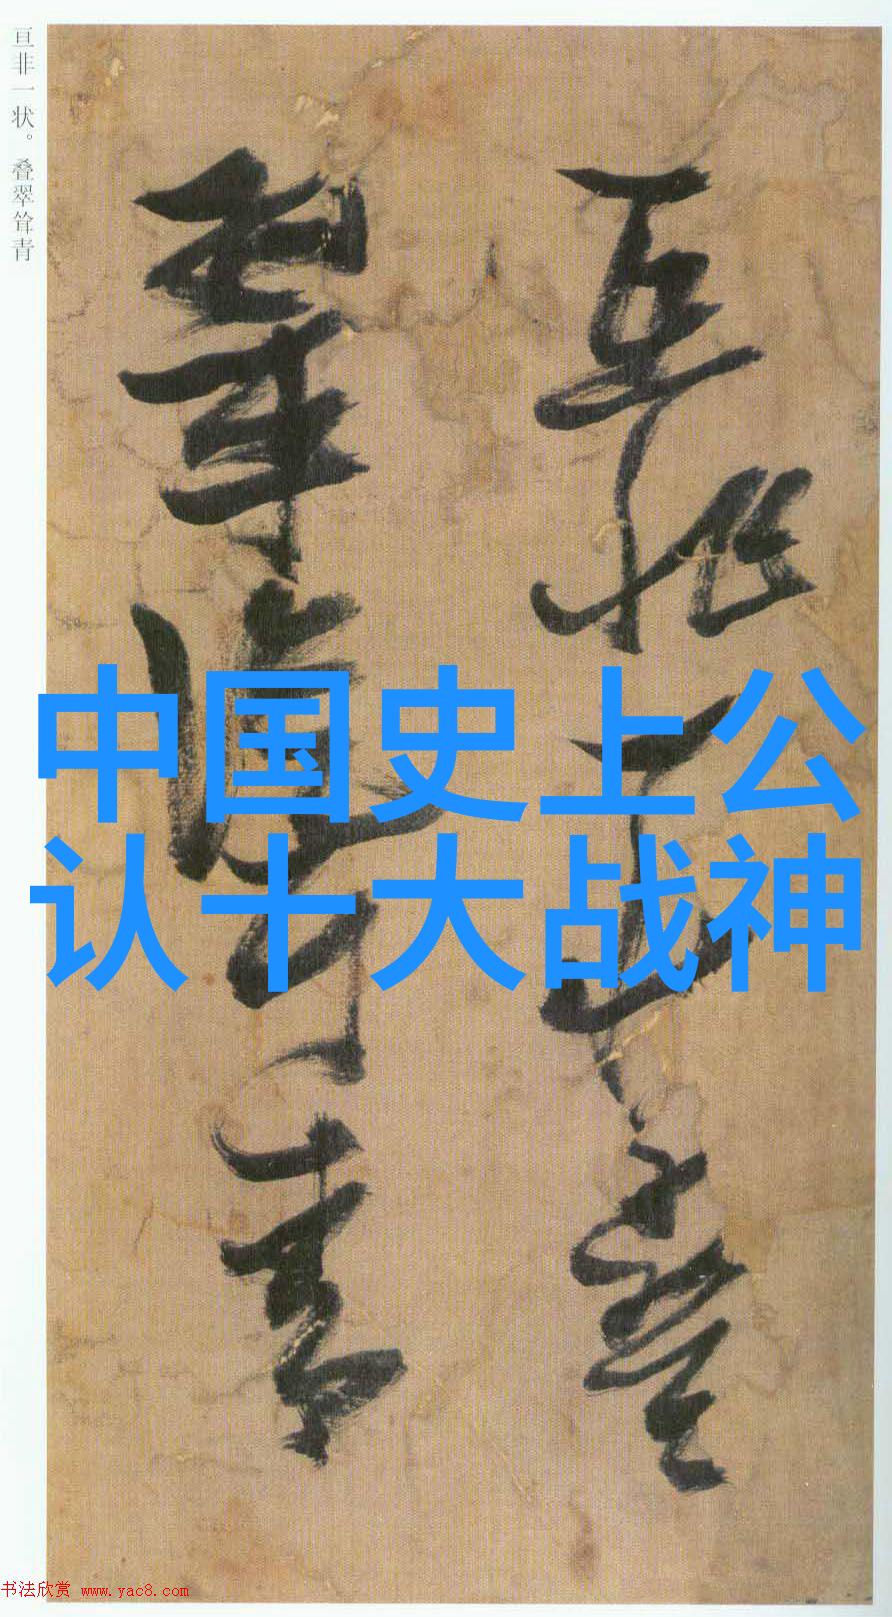 亘非一状。叠翠耸青
亘非一状叠
翠耸青
中国史上公
认十大战神
书法欣赏 www.yac8.com